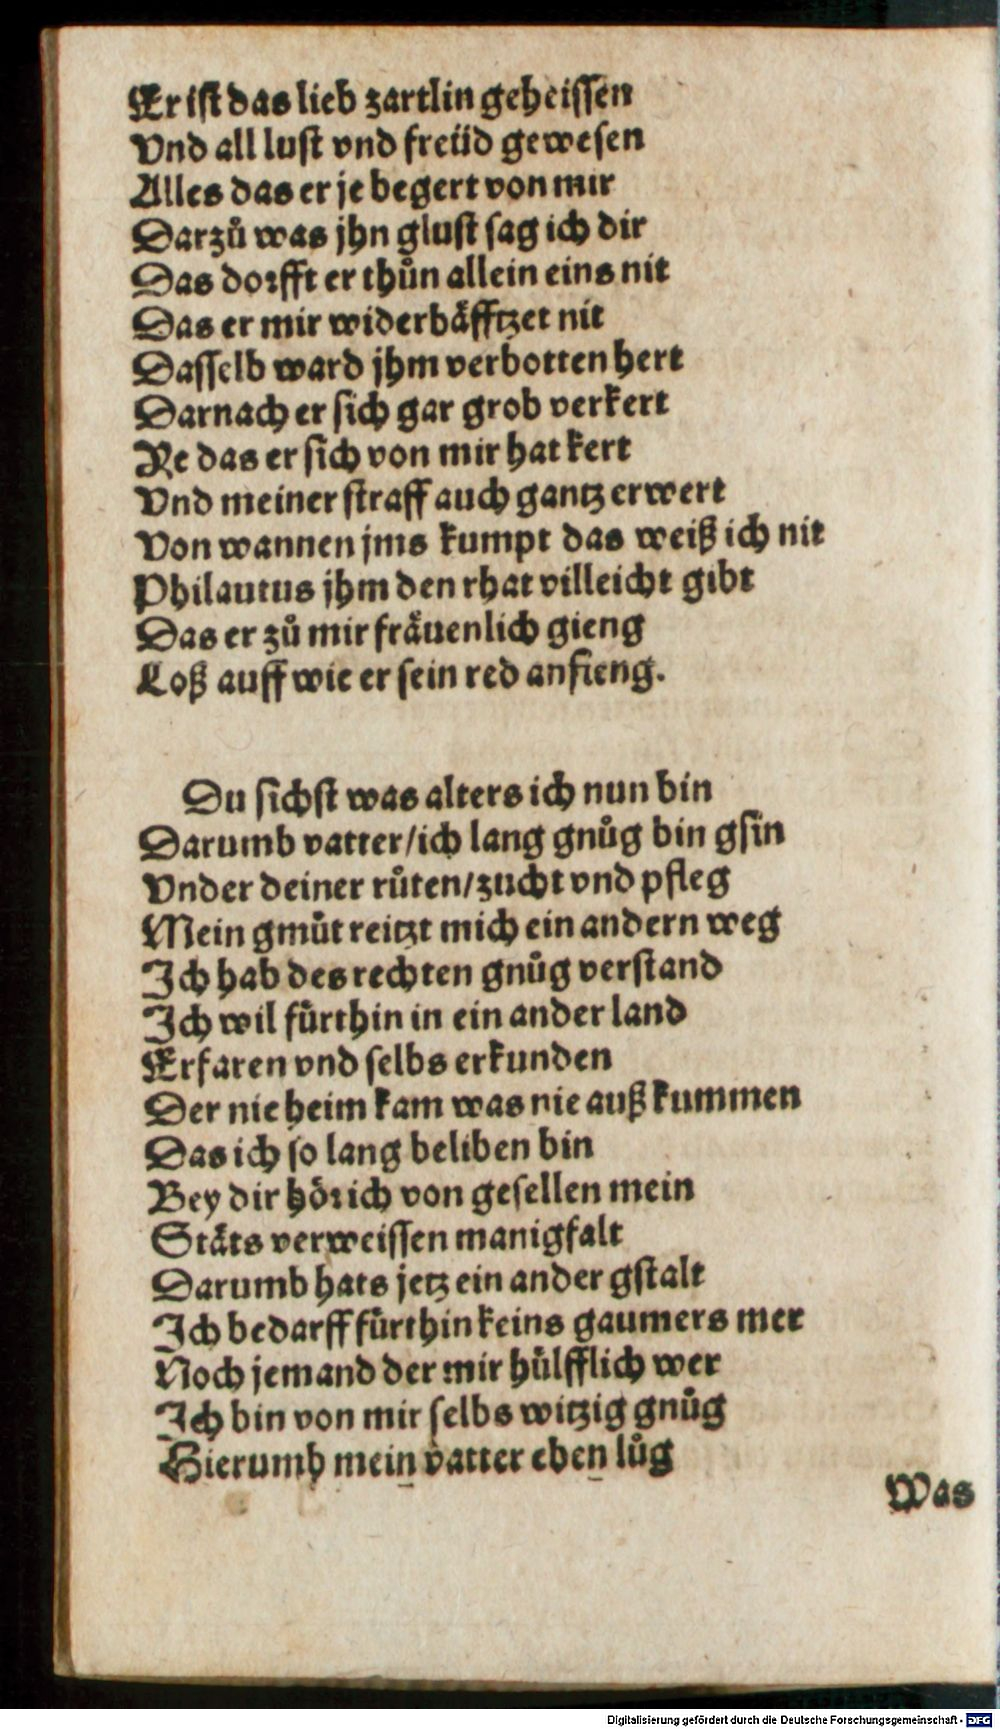 Er ist das lieb zartlin geheissen
Vnd all lust vnd freüd gewesen
Alles das er je begert von mir
Darzuͦ was jhn glust sag ich dir
Das dorfft er thuͦn allein eins nit
Das er mir widerbäfftzet nit
Dasselb ward jhm verbotten hert
Darnach er sich gar grob verkert
Re das er sich von mir hat kert
Vnd meiner straff auch gantz erwert
Von wannen jms kumpt das weiß ich nit
Philautus jhm den rhat villeicht gibt
Das er zuͦ mir fräuenlich gieng
Loß auff wie er sein red anfieng.
Du sichst was alters ich nun bin
Darumb vatter/ich lang gnuͦg bin gsin
Vnder deiner ruͦten/zucht vnd pfleg
Mein gmuͤt reitzt mich ein andern weg
Ich hab des rechten gnuͦg verstand
Ich wil fürthin in ein ander land
Erfaren vnd selbs erkunden
Der nie heim kam was nie auß kummen
Das ich so lang beliben bin
Bey dir hör ich von gesellen mein
Stäts verweissen manigfalt
Darumb hats jetz ein ander gstalt
Ich bedarff fürthin keins gaumers mer
Noch jemand der mir hülfflich wer
Ich bin von mir selbs witzig gnuͦg
Hierumb mein vatter eben luͦg
Was
Digitalisierung gefördert durch die Deutsche Forschungsgemeinschaft - DFG